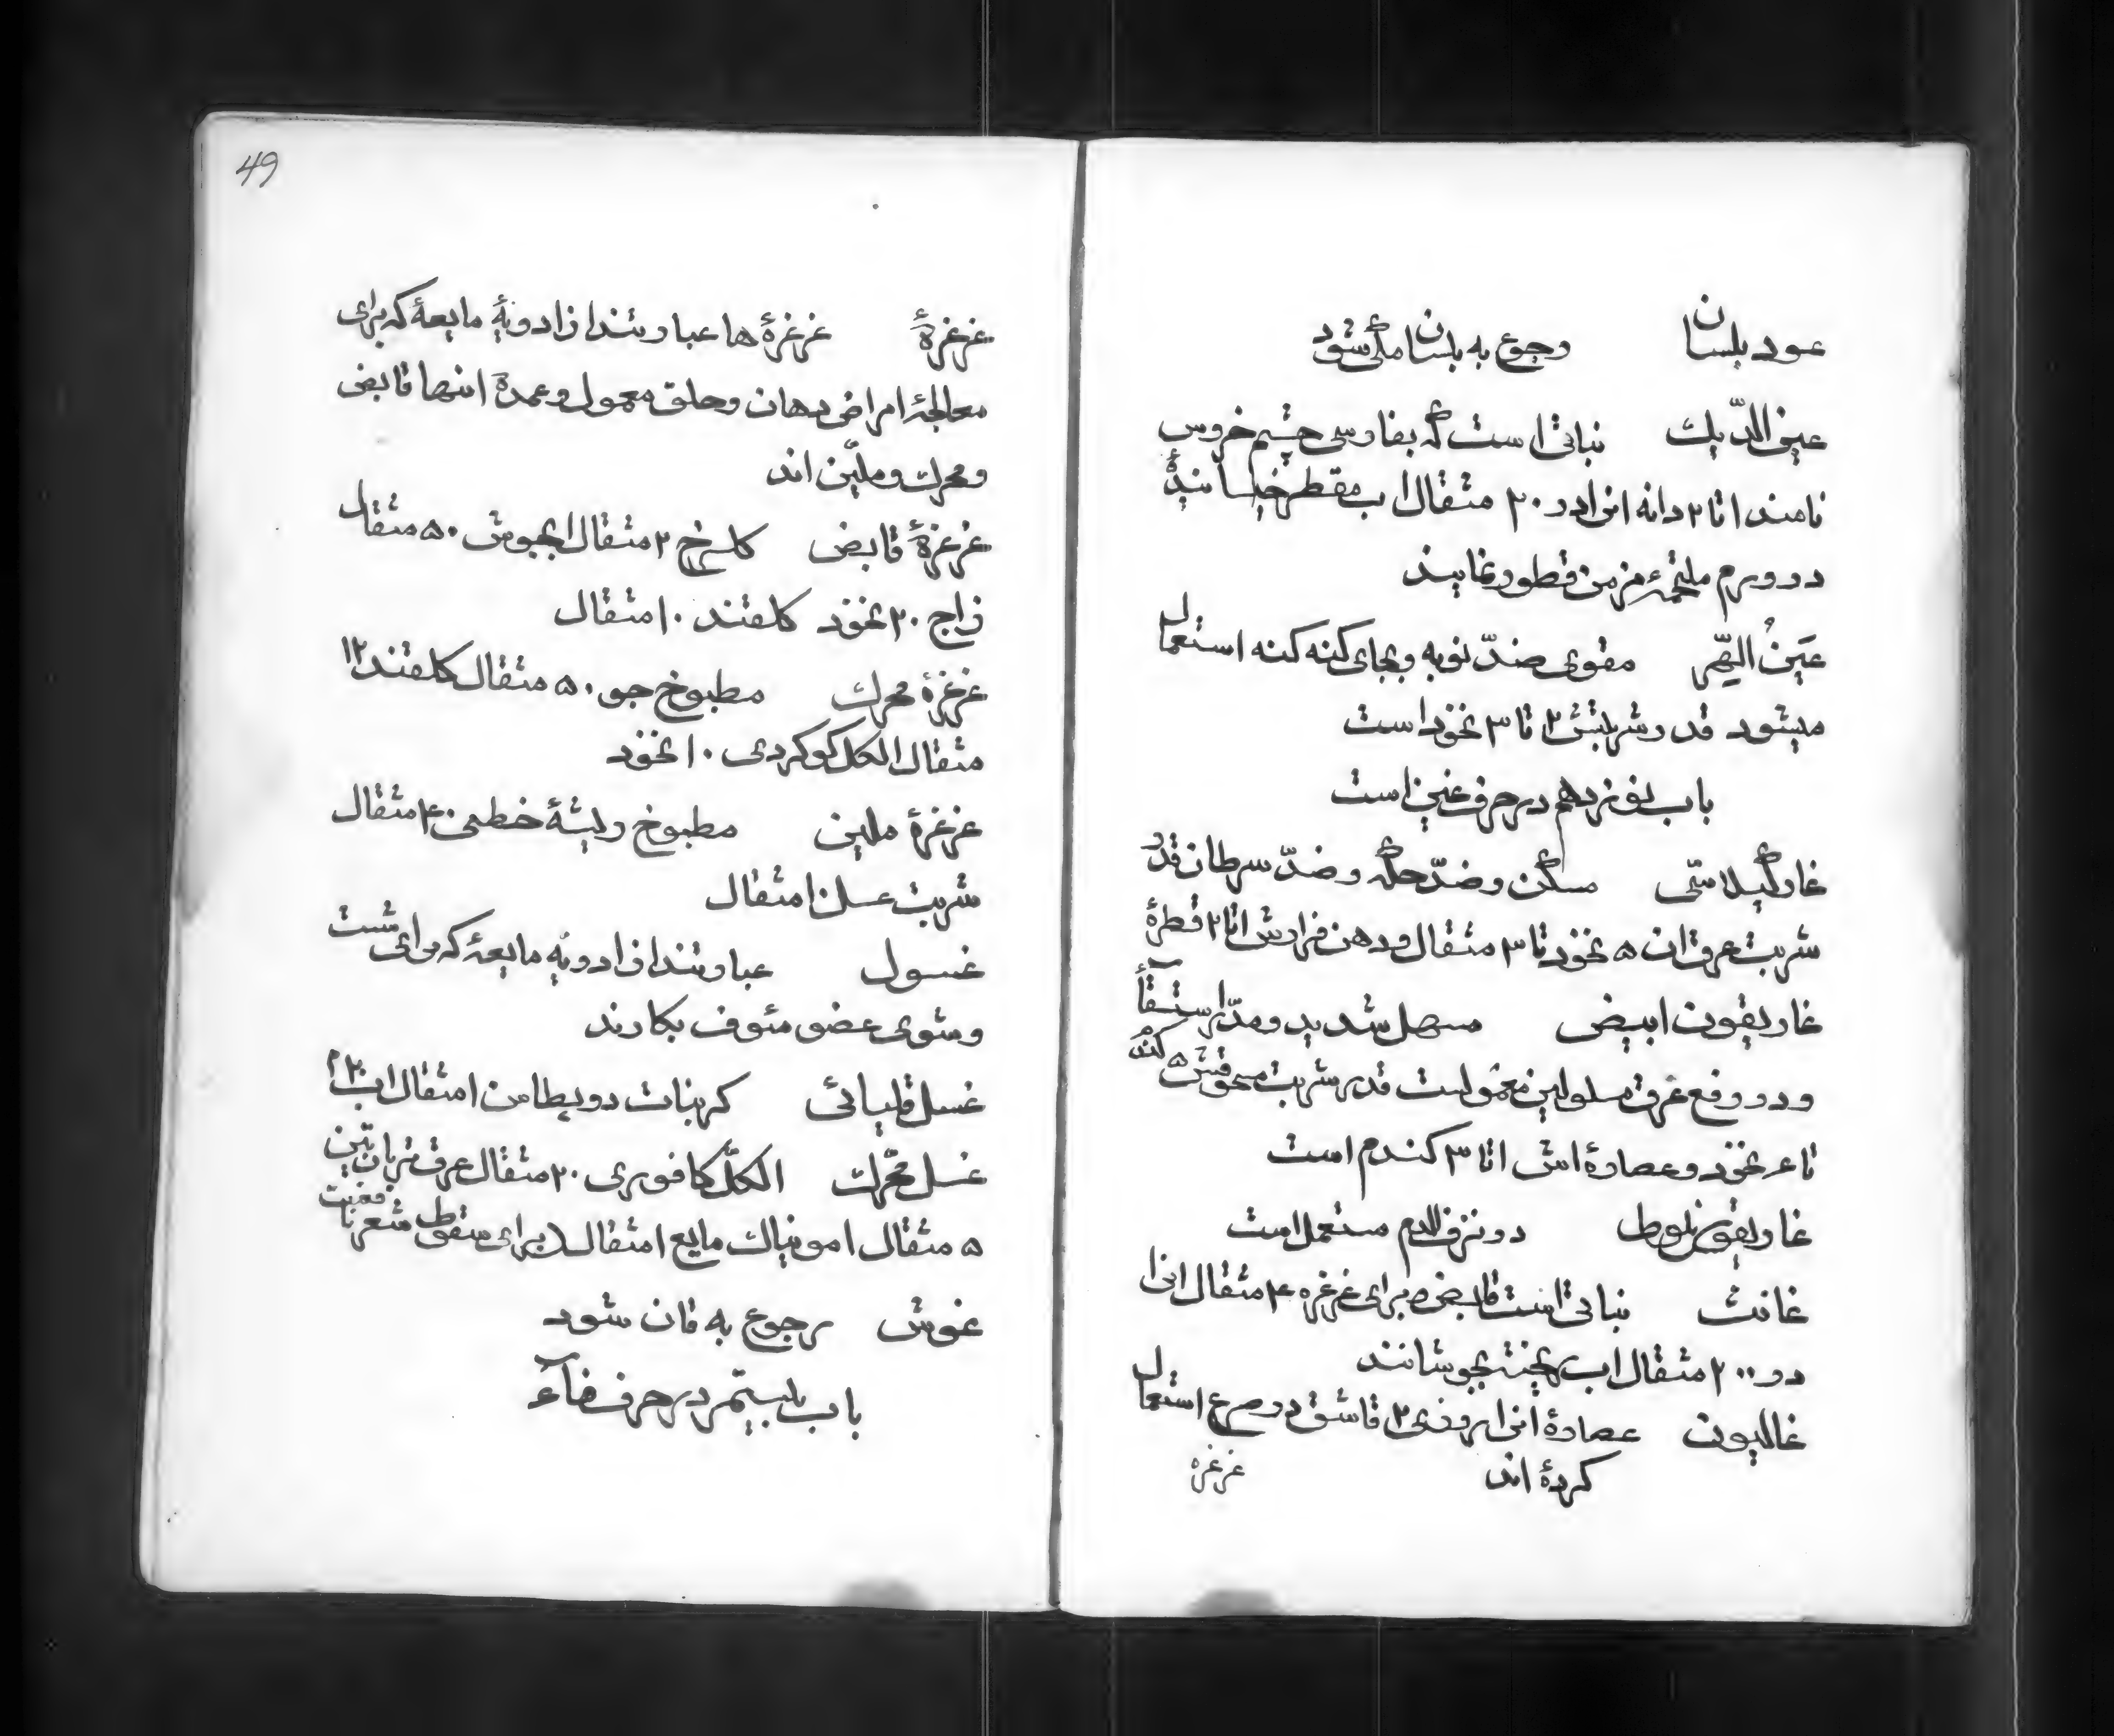 عود بلسان رجوع به بلسان مکی شود
عین الدّیك نباتی است که بفارسی چشم خروس
نامند ۱ تا ۲ دانه انرا در ۲۰ مثقال اب مقطر خیسانیدهٔ
در ورم ملتحمهٔ مزمن قطور نمایند
عَینُ الهِّر مقوی ضدّ نوبه و بجای کنه کنه استعمال
میشود قدر شربتش ۲ تا ۳ نخود است
باب نوزدهم در حرف غین است
غار گیلاسی مسکن و ضدّ حکّه و ضدّ سرطان قدر
شربت عرق ان ۵ نخود تا ۳ مثقال و دهن فرارش ۱ تا ۲ قطرهٔ
غاریقون ابیض مسهل شدید و در استسقآء
و در رفع عرق مسلولین معمولست قدر شربت مسحوقش ۵ کندم
تا ۴ نخود و عصارهٔ اش ۱ تا ۳ کندم است
غاریقون بلوط در نزف الدم مستعمل است
غافث نباتی است قابض و برای غرغره ۴ مثقال انرا
در ۲۰۰ مثقال اب ریخته بجوشانند
غالیون عصارهٔ انرا روزی ۲ قاشق در صرع استعمال
کردهٔ اند
غرغره
49
غرغرهٔ غرغرهٔ ها عبارتند از ادویهٔ مایعهٔ که برای
معالجهٔ امراض دهان و حلق معمول و عمدهٔ انها قابض
و محرك و ملیّن اند
غرغرهٔ قابض کلسرخ ۲ مثقال ابجوش ۵۰ مثقال
زاج ۲۰ نخود کلقند ۱۰ مثقال
غرغرهٔ محرك مطبوخ جو ۵۰ مثقال کلقند ۱۲
مثقال الکل کوکردی ۱۰ نخود
غرغرهٔ ملین مطبوخ ریشهٔ خطمی ۴۰ مثقال
شربت عسل ۱۰ مثقال
غسول عبارتند از ادویهٔ مایعهٔ که برای شست
و شوی عضو مئوف بکارند
غسل قلیائی کربنات دو پطاس ۱ مثقال اب ۱۲۰
غسل محرّك الکل کافوری ۲۰ مثقال عرق تربانتین
۵ مثقال امونیاك مایع ۱ مثقال برای سقوط شعر نافعیت
غوش رجوع به قان شود
باب بیستم در حرف فآء